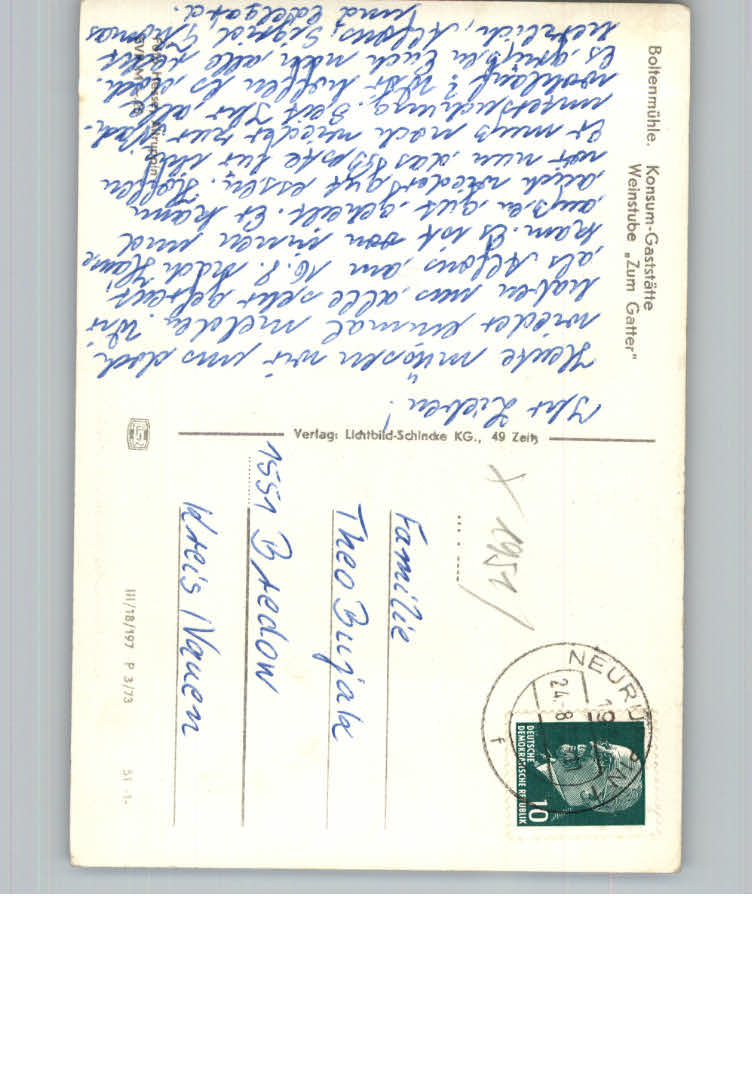 Boltenmühle. Konsum-Gaststätte
Weinstube „Zum Gatter"
Ihr Lieben!
Heute müssen wir uns doch
wieder einmal melden. Wir
haben uns alle sehr gefreut
als Alfons am 16.8. nach Hause
kam. Es ist von innen und
außen gut geheilt. Er kann
auch wieder gut essen. Hoffen
wir nun, das
Er muß noch wieder zur
untersuchung. Seit Ihr alle
wohlauf? Wir hoffen es doch.
Es grüßen Euch nun alle recht
herzlich, Alfons, Sigrid, Thomas
und Edelgard.
Verlag: Lichtbild-Schincke KG., 49 Zeitz
X 1951
Familie
Theo Bujak
1551 Bredow
Kreis Nauen
III/18/197 P 3/73
51 -1-
NEURUPPIN
24.-8
DEUTSCHE
DEMOKRATISCHE REPUBLIK
10